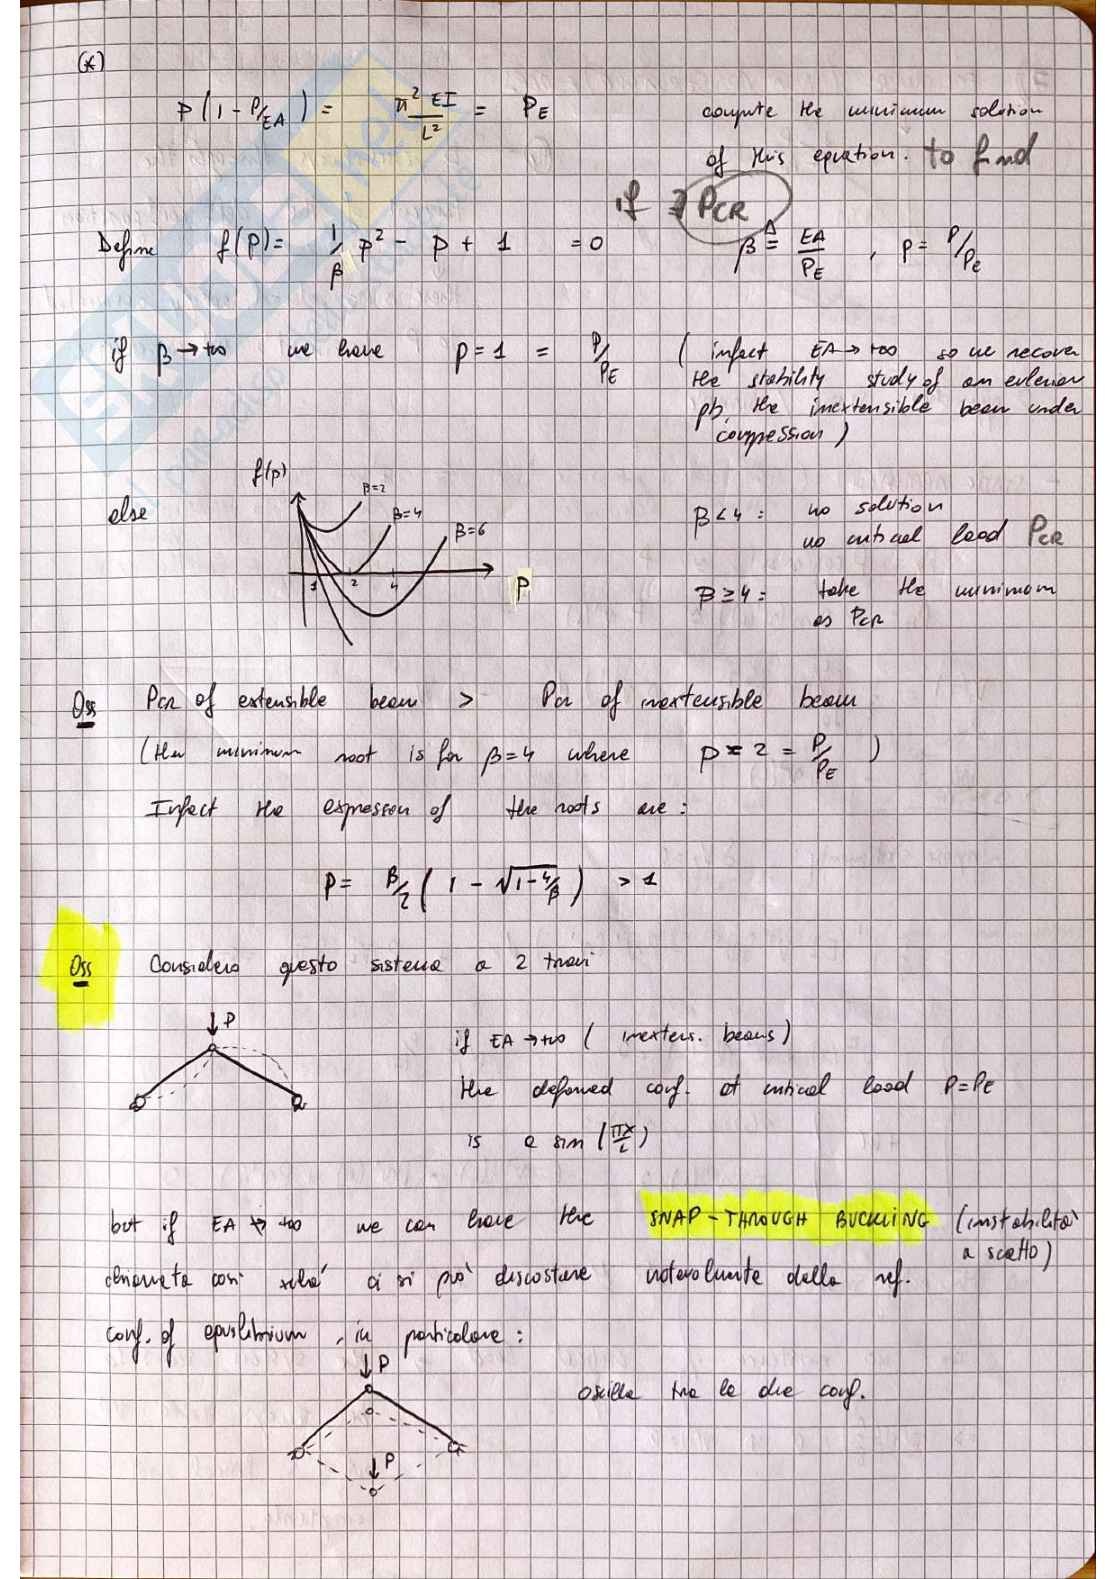 (*)
P (1 - P/EA) = π² EI / L² = P_E compute the minimum solution
of this equation. to find
if ∃ P_CR
Define f(p) = 1/β p² - p + 1 = 0 β ≜ EA/P_E , p = P/P_E
if β → +∞ we have p = 1 = P/P_E ( infact EA → +∞ so we recover
the stability study of an eulerian
pb, the inextensible beam under
compression )
f(p)
else
β=2
β=4
β=6
1 2 4 P
β<4 : no solution
no critical load P_CR
β≥4 : take the minimum
as P_CR
Oss P_CR of extensible beam > P_CR of inextensible beam
(the minimum root is for β=4 where p = 2 = P/P_E )
Infact the expression of the roots are :
p = β/2 ( 1 - √(1-4/β) ) > 1
Oss Considero questo sistema a 2 travi
P
if EA → +∞ ( inextens. beams )
the deformed conf. at critical load P=P_E
is a sin (πx/L)
but if EA ↛ +∞ we can have the SNAP-THROUGH BUCKLING (instabilità
a scatto)
chiamata così xché ci si può discostare notevolmente dalla ref.
conf. of equilibrium , in particolare :
P
oscilla tra le due conf.
P